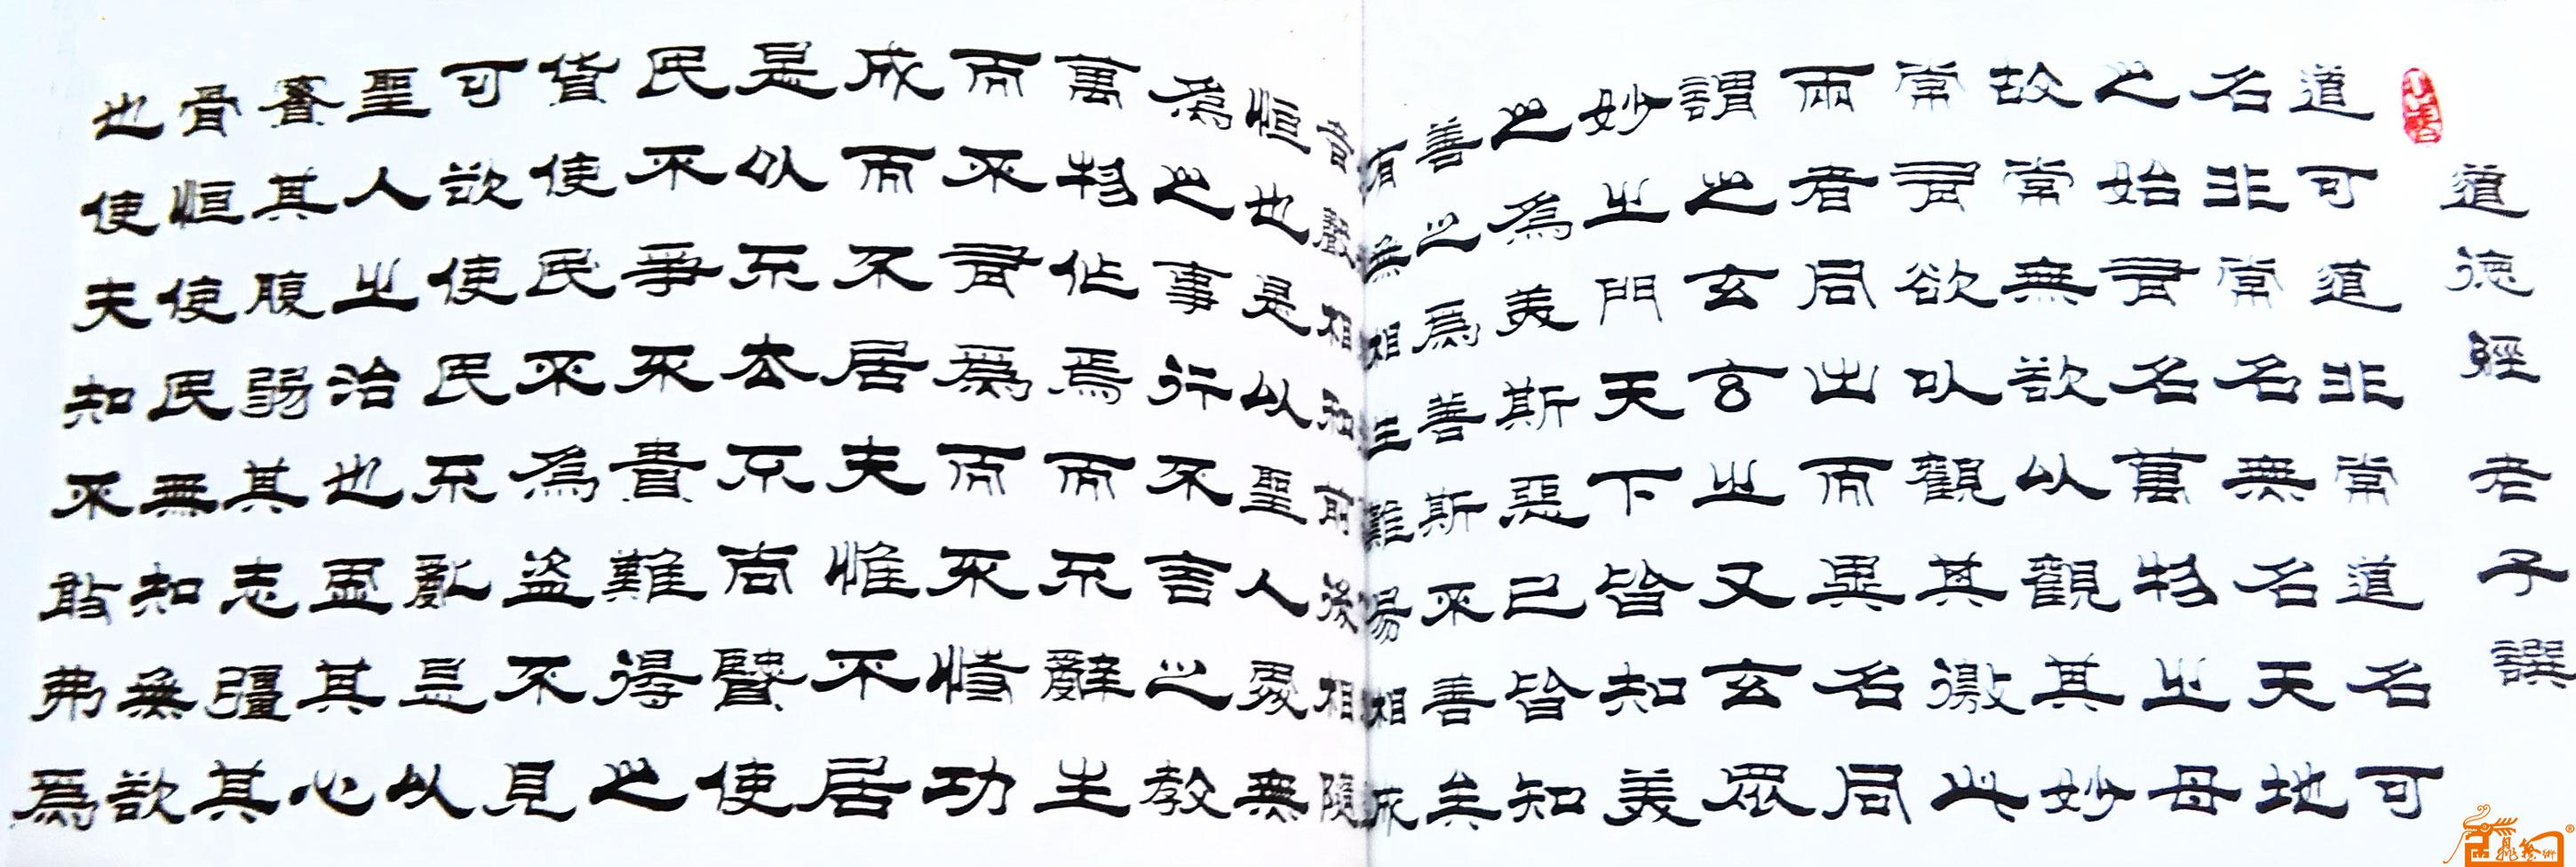 道德經 老子譔
道可道非常道名可
名非常名無名天地
之始有名萬物之母
故常無欲以觀其妙
常有欲以觀其徼此
兩者同出而異名同
謂之玄玄之又玄眾
妙之門天下皆知美
之為美斯惡已皆知
善之為善斯不善矣
有無相生難易相成
音聲相和前後相隨
恒也是以聖人處無
為之事行不言之教
萬物作焉而不辭生
而不有為而不恃功
成而不居夫惟不居
是以不去不尚賢使
民不爭不貴難得之
貨使民不為盜不見
可欲使民不亂是以
聖人之治也虛其心
實其腹弱其志彊其
骨恒使民無知無欲
也使夫知不敢弗為